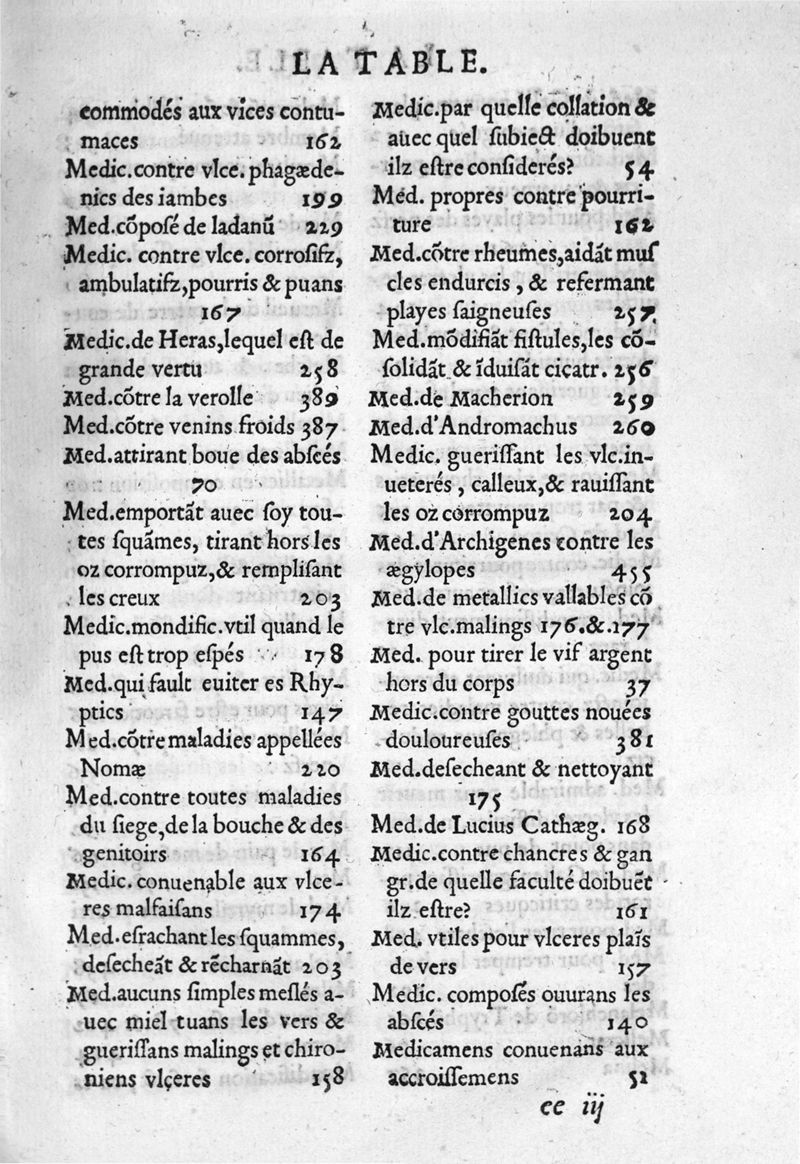 LA TABLE.
commodés aux vices contu-
maces 162
Medic.contre vlce.phagæde-
nics des iambes 199
Med.cõposé de ladanũ 229
Medic. contre vlce. corrosifz,
ambulatifz,pourris & puans
167
Medic.de Heras,lequel est de
grande vertu 258
Med.cõtre la verolle 389
Med.cõtre venins froids 387
Med.attirant boue des abscés
70
Med.emportãt auec soy tou-
tes squãmes, tirant hors les
oz corrompuz,& remplisant
les creux 203
Medic.mondific.vtil quand le
pus est trop espés 178
Med.qui fault euiter es Rhy-
ptics 147
Med.cõtre maladies appellées
Nomæ 220
Med.contre toutes maladies
du siege,de la bouche & des
genitoirs 164
Medic. conuenable aux vlce-
res malfaisans 174
Med.esrachant les squammes,
desecheãt & rẽcharnãt 203
Med.aucuns simples meslés a-
uec miel tuans les vers &
guerissans malings et chiro-
niens vlçeres 158
Medic.par quelle collation &
auec quel subiect doibuent
ilz estre considerés? 54
Med. propres contre pourri-
ture 162
Med.cõtre rheumes,aidãt mus
cles endurcis , & refermant
playes saigneuses 257.
Med.mõdifiãt fistules,les cõ-
solidãt & ĩduisãt cicatr. 256
Med.de Macherion 259
Med.d'Andromachus 260
Medic. guerissant les vlc.in-
ueterés , calleux,& rauissant
les oz corrompuz 204
Med.d'Archigenes contre les
ægylopes 455
Med.de metallics vallables cõ
tre vlc.malings 176.&.177
Med. pour tirer le vif argent
hors du corps 37
Medic.contre gouttes nouées
douloureuses 381
Med.desecheant & nettoyant
175
Med.de Lucius Cathæg. 168
Medic.contre chancres & gan
gr.de quelle faculté doibuẽt
ilz estre? 161
Med. vtiles pour vlceres plaĩs
de vers 157
Medic. composés ouurans les
abscés 140
Medicamens conuenans aux
accroissemens 52
ee iij